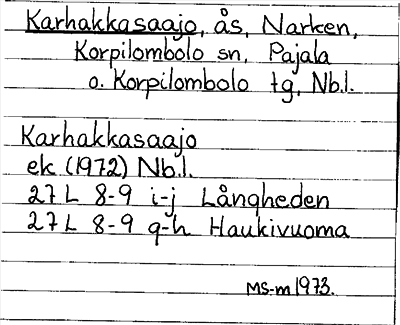 Karhakkasaajo, ås, Narken,
Korpilombolo sn, Pajala
o. Korpilombolo tg, Nb.l.
Karhakkasaajo
ek (1972) Nb.l.
27 L 8-9 i-j Långheden
27 L 8-9 g-h Haukivuoma
MS-m 1973.